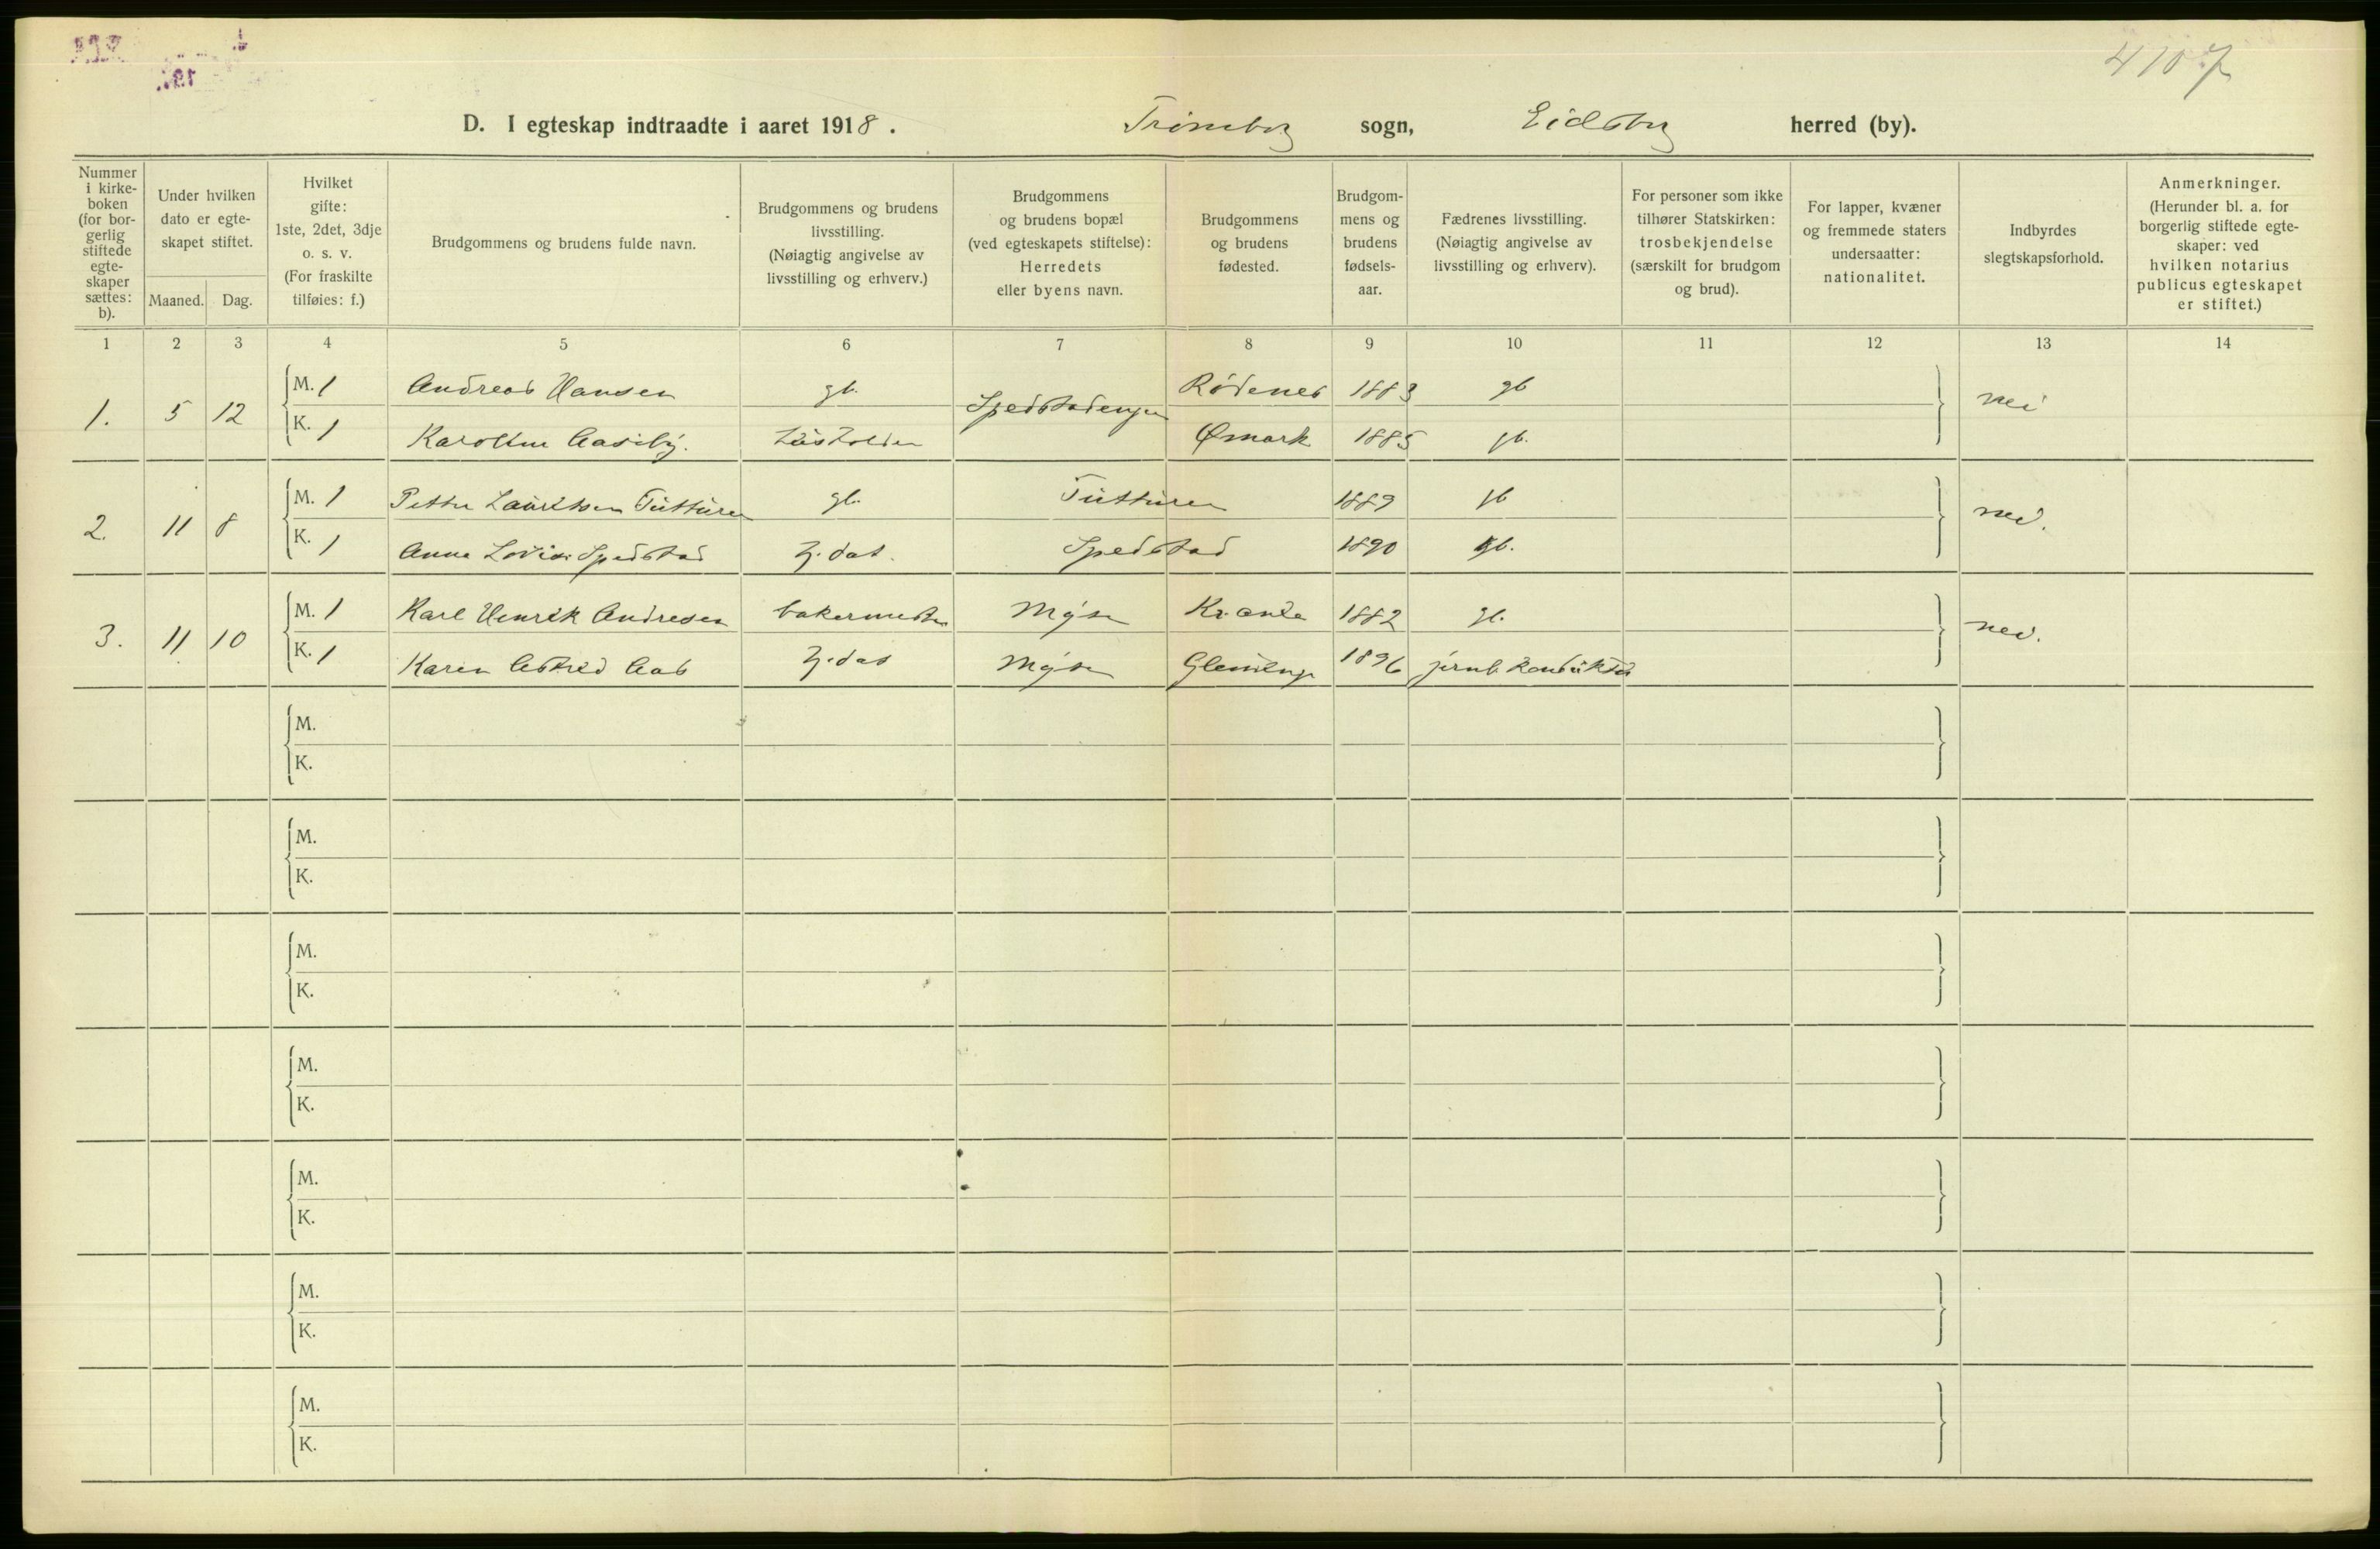 4107
D. I egteskap indtraadte i aaret 1918. Trömborg sogn, Eidsberg herred (by).
Nummer i kirke- boken (for bor- gerlig stiftede egte- skaper sættes: b).
Under hvilken dato er egte- skapet stiftet.
Maaned. Dag.
Hvilket gifte: 1ste, 2det, 3dje o. s. v. (For fraskilte tilføies: f.)
Brudgommens og brudens fulde navn.
Brudgommens og brudens livsstilling. (Nøiagtig angivelse av livsstilling og erhverv.)
Brudgommens og brudens bopæl (ved egteskapets stiftelse): Herredets eller byens navn.
Brudgommens og brudens fødested.
Brudgom- mens og brudens fødsels- aar.
Fædrenes livsstilling. (Nøiagtig angivelse av livsstilling og erhverv).
For personer som ikke tilhører Statskirken: trosbekjendelse (særskilt for brudgom og brud).
For lapper, kvæner og fremmede staters undersaatter: nationalitet.
Indbyrdes slegtskapsforhold.
Anmerkninger. (Herunder bl. a. for borgerlig stiftede egte- skaper: ved hvilken notarius publicus egteskapet er stiftet.)
1 2 3 4 5 6 7 8 9 10 11 12 13 14
1. 5 12 M. 1 Andreas Hansen gb. Spedstadengen Rødenes 1883 gb nei
K. 1 Karoline Aaseby. Husholder Ømark 1885 gb.
2. 11 8 M. 1 Petter Lauritsen Tutturen gb. Tutturen 1889 gb nei.
K. 1 Anna Lovise Spedstad h. dat. Spedstad 1890 gb.
3. 11 10 M. 1 Karl Henrik Andresen bakermester Mysen Kr.ania 1882 gb. nei.
K. 1 Karen Astrid Aas h. dat Mysen Glemminge 1896 jernb. konduktør
M.
K.
M.
K.
M.
K.
M.
K.
M.
K.
M.
K.
M.
K.